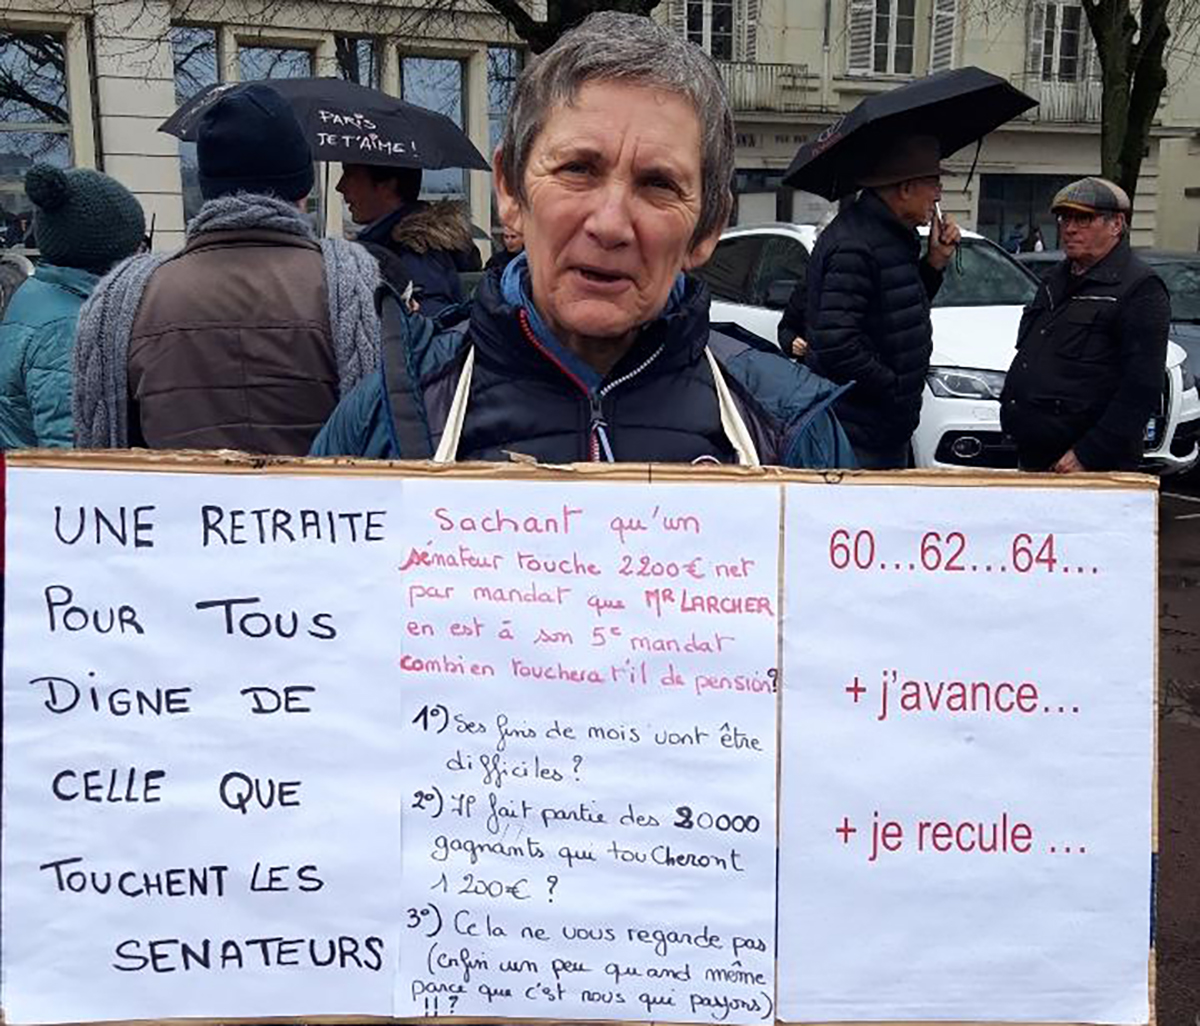 PARIS
JE T'AIME !
UNE RETRAITE
POUR TOUS
DIGNE DE
CELLE QUE
TOUCHENT LES
SENATEURS
Sachant qu'un
sénateur touche 2200€ net
par mandat que MR LARCHER
en est à son 5e mandat
combien touchera t'il de pension?
1°) Ses fins de mois vont être
difficiles ?
2°) Il fait partie des 20000
gagnants qui toucheront
1 200€ ?
3°) Cela ne vous regarde pas
(enfin un peu quand même
parce que c'est nous qui payons)
!! ?
60...62...64...
+ j'avance...
+ je recule ...